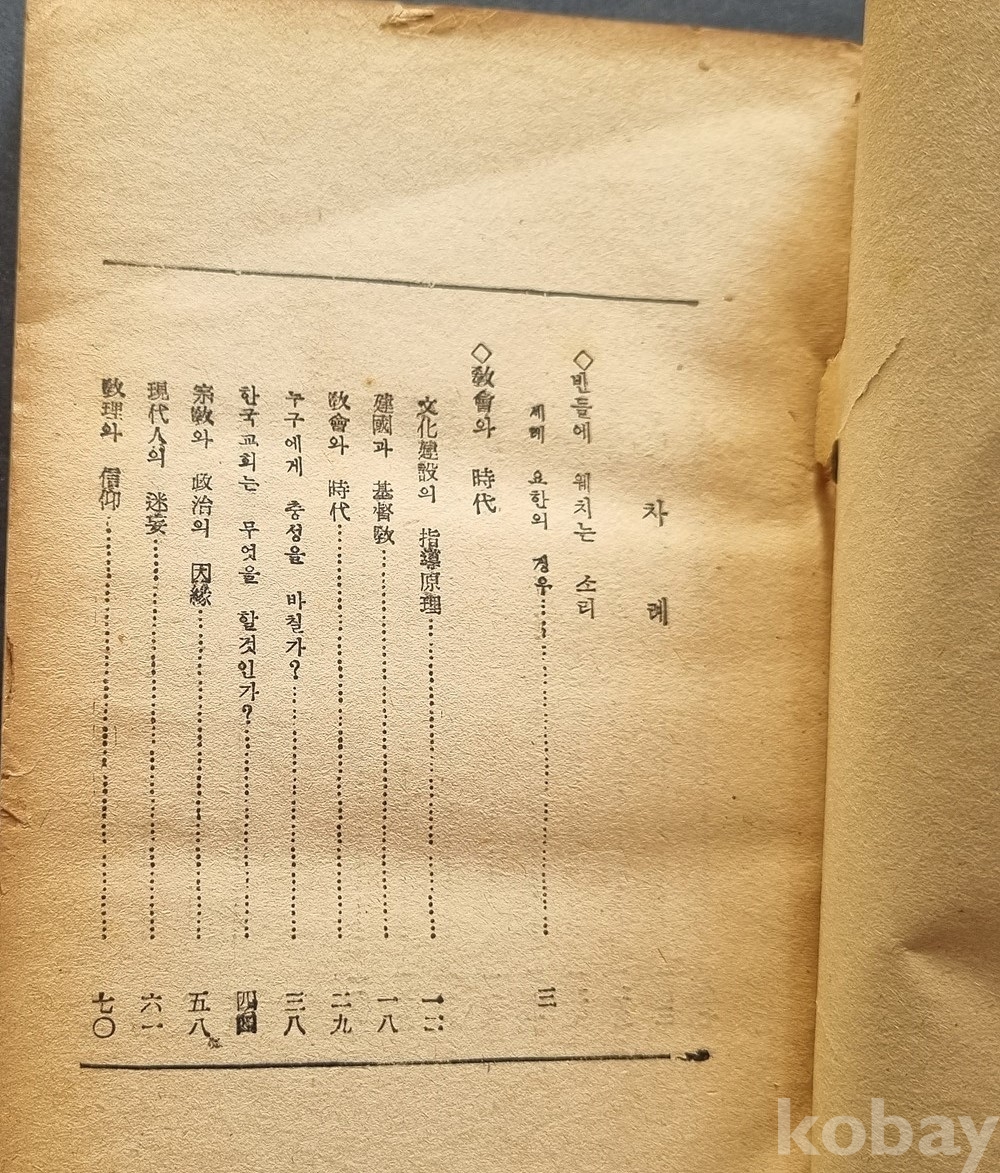 차 례
◇반들에 웨치는 소리
세례 요한의 경우 三
◇敎會와 時代
文化建設의 指導原理 一二
建國과 基督敎 一八
敎會와 時代 二九
누구에게 충성을 바칠가? 三八
한국교회는 무엇을 할것인가? 四四
宗敎와 政治의 因緣 五八
現代人의 迷妄 六一
敎理와 信仰 七〇
kobay